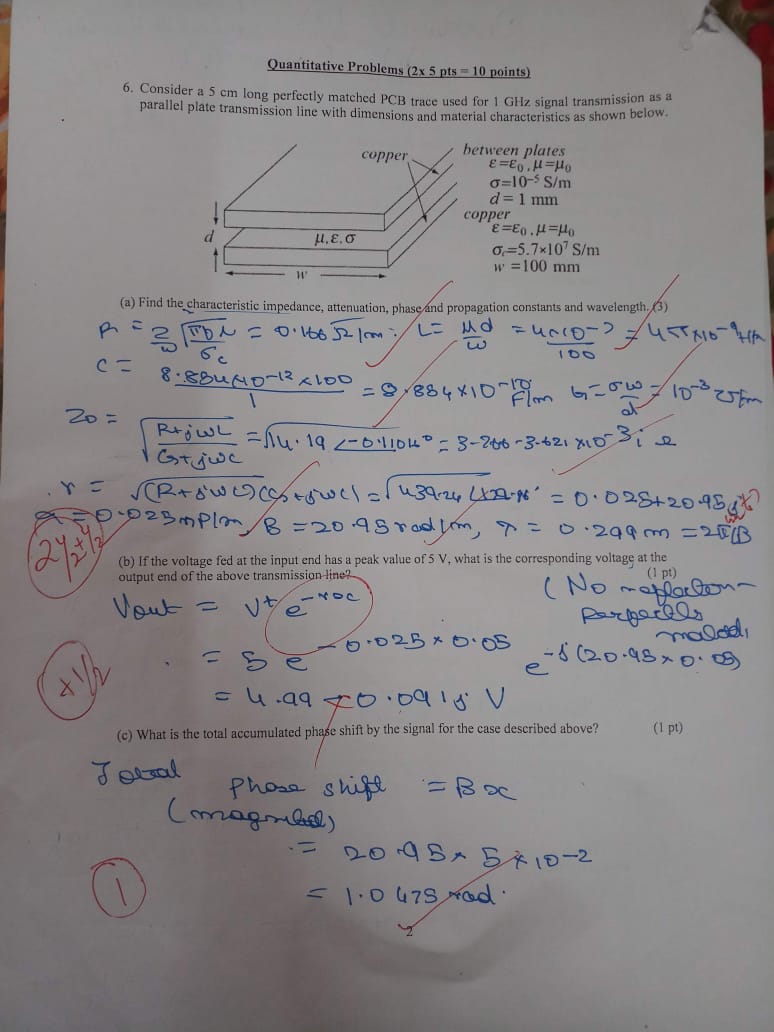 Quantitative Problems (2x 5 pts = 10 points)
6. Consider a 5 cm long perfectly matched PCB trace used for 1 GHz signal transmission as a
parallel plate transmission line with dimensions and material characteristics as shown below.
copper
between plates
ε=ε₀, μ=μ₀
σ=10⁻⁵ S/m
d = 1 mm
copper
ε=ε₀, μ=μ₀
σc=5.7×10⁷ S/m
w =100 mm
d
μ, ε, σ
w
(a) Find the characteristic impedance, attenuation, phase and propagation constants and wavelength. (3)
R = 2/w √(πfμ/σc) = 0.166 Ω/m L = μd/w = 4π×10⁻⁷/100 = 4π×10⁻⁹ H/m
C = 8.884×10⁻¹²×100/1 = 8.884×10⁻¹⁰ F/m G = σw/d = 10⁻³ ℧/m
Z₀ = √((R+jωL)/(G+jωC)) = √(14.19 ∠-0.1104°) = 3.766-3.621×10⁻³i Ω
γ = √((R+jωL)(G+jωC)) = √(439.24 = 0.025+20.95j
α = 0.025 mP/m, β = 20.95 rad/m, λ = 0.299 m = 2π/β
2½+½
(b) If the voltage fed at the input end has a peak value of 5 V, what is the corresponding voltage at the
output end of the above transmission line? (1 pt)
Vout = V⁺ e (No reflection-
perfectly
matched)
= 5 e^-0.025×0.05 e^-j(20.95×0.05)
= 4.99 0.091j V
+1/2
(c) What is the total accumulated phase shift by the signal for the case described above? (1 pt)
Total
Phase shift = βx
(magnitude)
= 20.95×5×10⁻²
= 1.0475 rad.
1
2